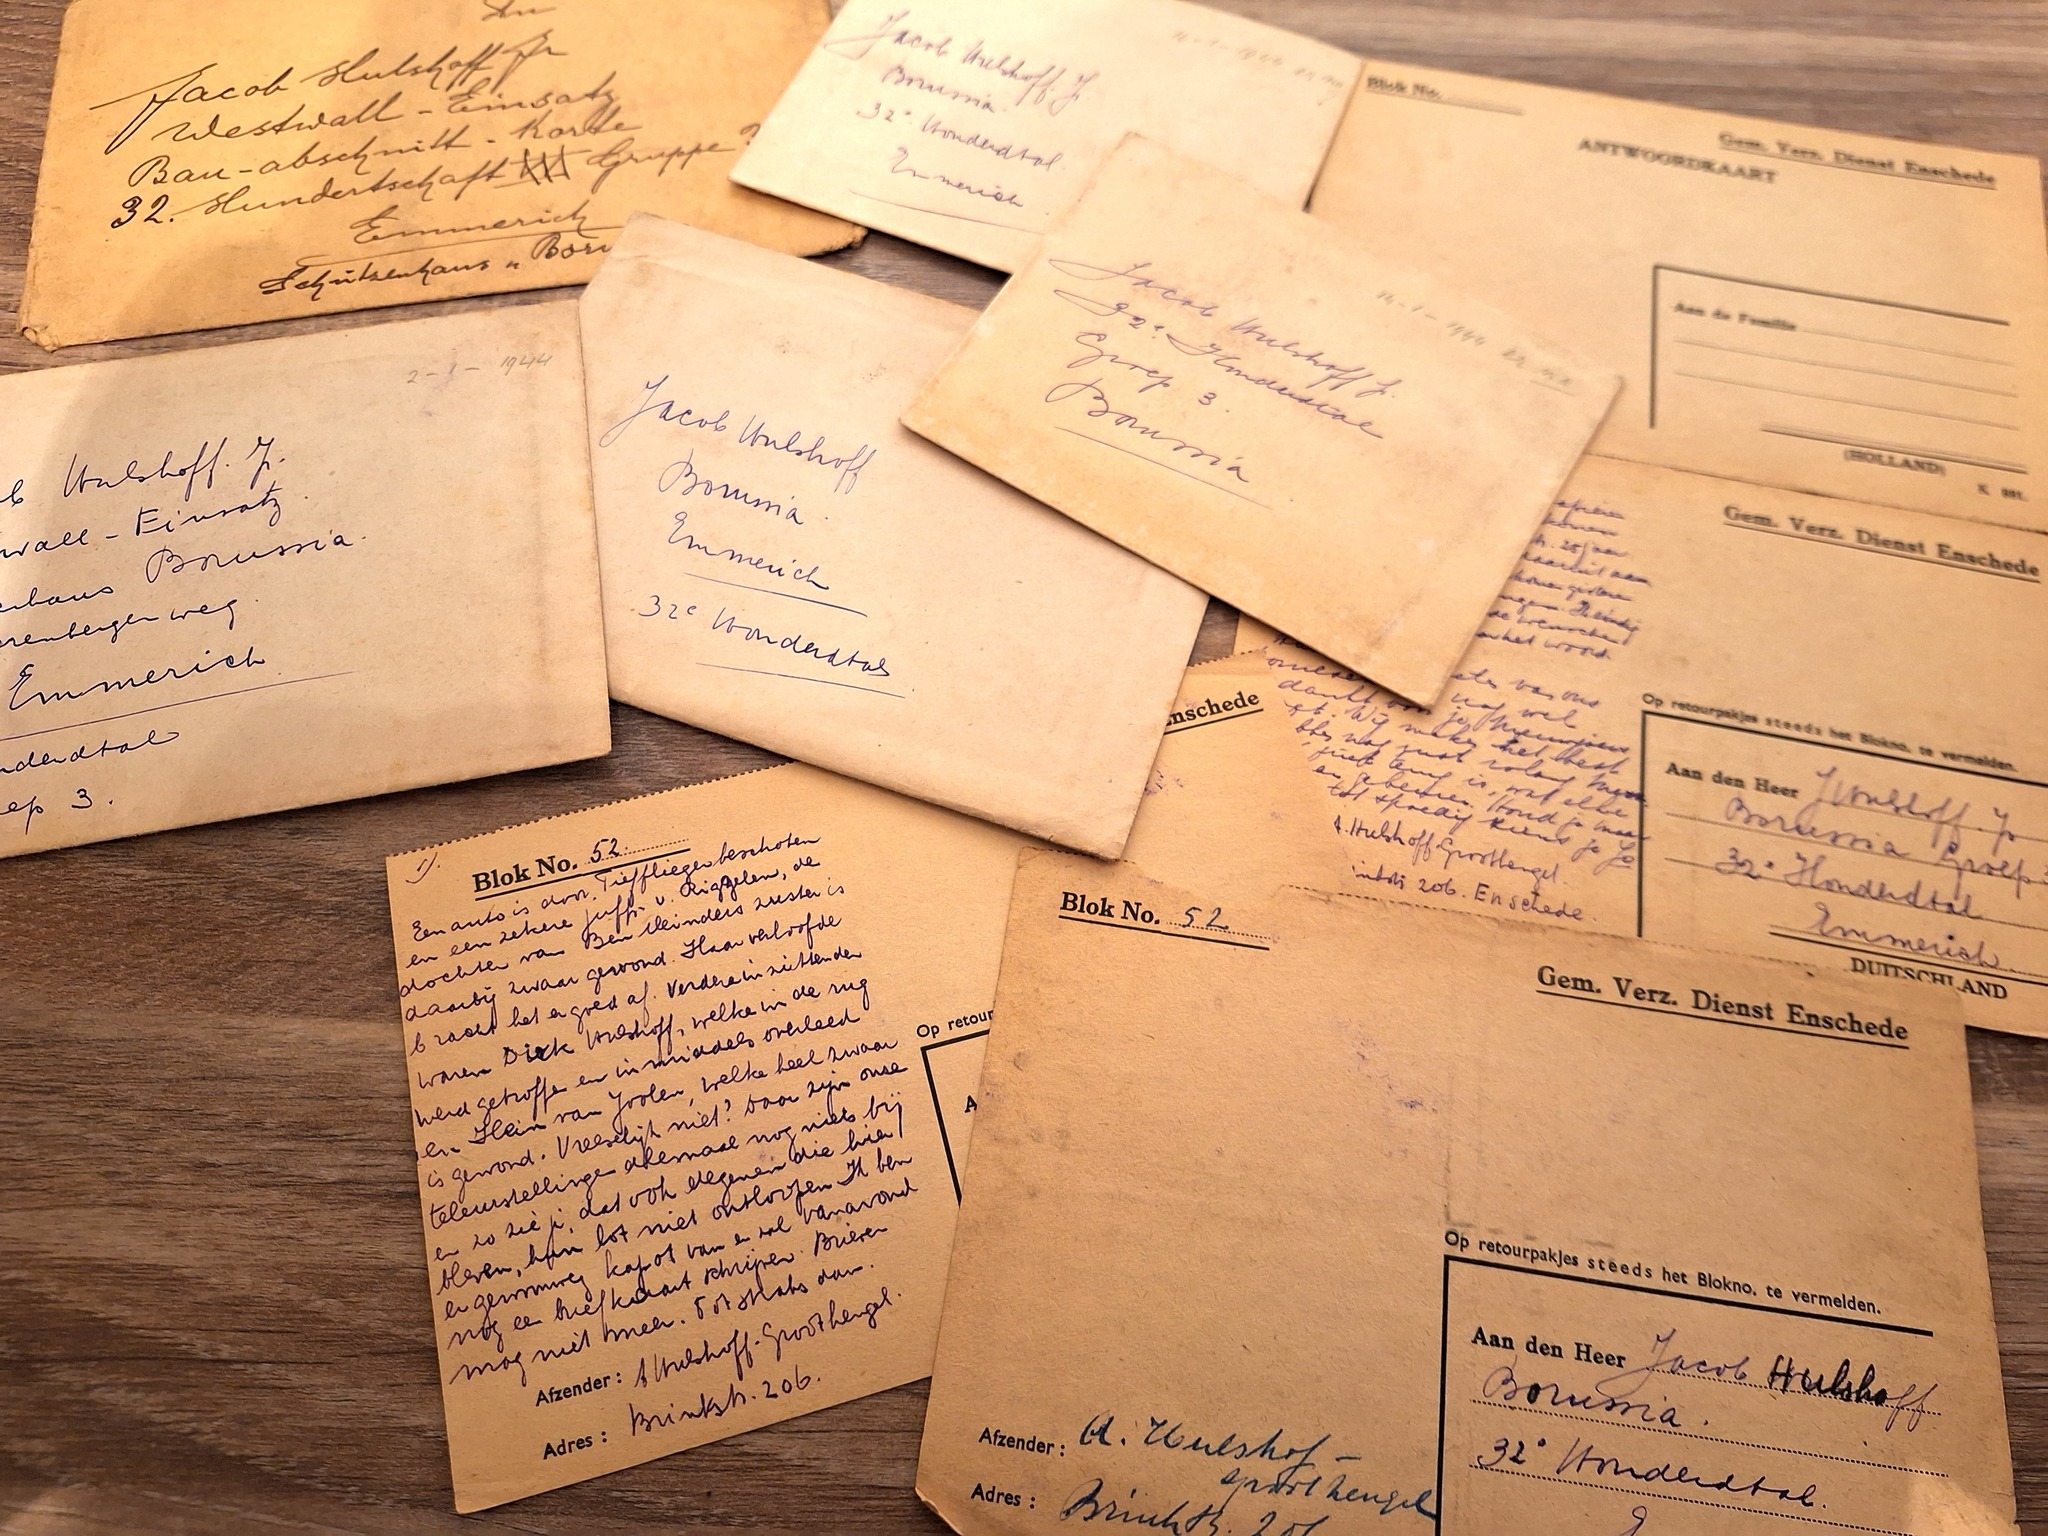 An
Jacob Hulshoff Jr
Westwall - Einsatz
Bau-abschnitt - Korte
32. Hundertschaft Gruppe
Emmerich
Schützenhaus "Boru
Jacob Hulshoff. J.
Borussia.
32e Honderdtal.
Emmerich
Blok No.
Gem. Verz. Dienst Enschede
ANTWOORDKAART
Aan de Familie
(HOLLAND)
K 881.
1944
Jacob Hulshoff J.
32e Honderdtal
Groep 3.
Borussia
2- - 1944
b Hulshoff. J.
wall - Einsatz
Borussia.
nhaus
renbergerweg
Emmerich
nderdtal
ep 3.
Jacob Hulshoff
Borussia.
Emmerich
32e Honderdtal
Gem. Verz. Dienst Enschede
Op retourpakjes steeds het Blokno. te vermelden.
Aan den Heer J Hulshoff. Jr
Borussia Groep
32e Honderdtal
Emmerich
DUITSCHLAND
van ons
nog wel
je Nieuwjaars
Wij maken het best
nog zoolang
is, wat
gebeuren. Houd je
tot spoedig
A. Hulshoff-Groothengel.
206. Enschede.
nschede
1).
Blok No. 52.
Een auto is door Tieffliegerbeschoten
en een zekere juffr. v. Riggelen, de
dochter van Ben Reinders zuster is
daarbij zwaar gewond. Haar verloofde
bracht het er goed af. Verdere inzittenden
waren Dick Hulshoff, welke in de rug
werd getroffen en inmiddels overleed
en Hein van Joolen, welke heel zwaar
is gewond. Vreeselijk niet? Daar zijn onze
teleurstellingen allemaal nog niets bij
en zo zie je, dat ook degenen die hier
bleven, hun lot niet ontloopen. Ik ben
er gewoonweg kapot van en zal vanavond
nog een briefkaart schrijven. Brieven
mag niet meer. Tot straks dan.
Afzender: A Hulshoff-Groothengel.
Adres: Brinkstr. 206.
Op retour
A
Blok No. 52
Gem. Verz. Dienst Enschede
Op retourpakjes steeds het Blokno. te vermelden.
Aan den Heer Jacob Hulshoff
Borussia.
32e Honderdtal.
Afzender: A. Hulshof-
Groothengel
Adres: Brinkstr. 206